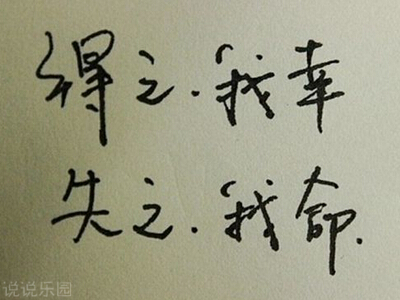 得之.我幸
失之.我命.
说说乐园